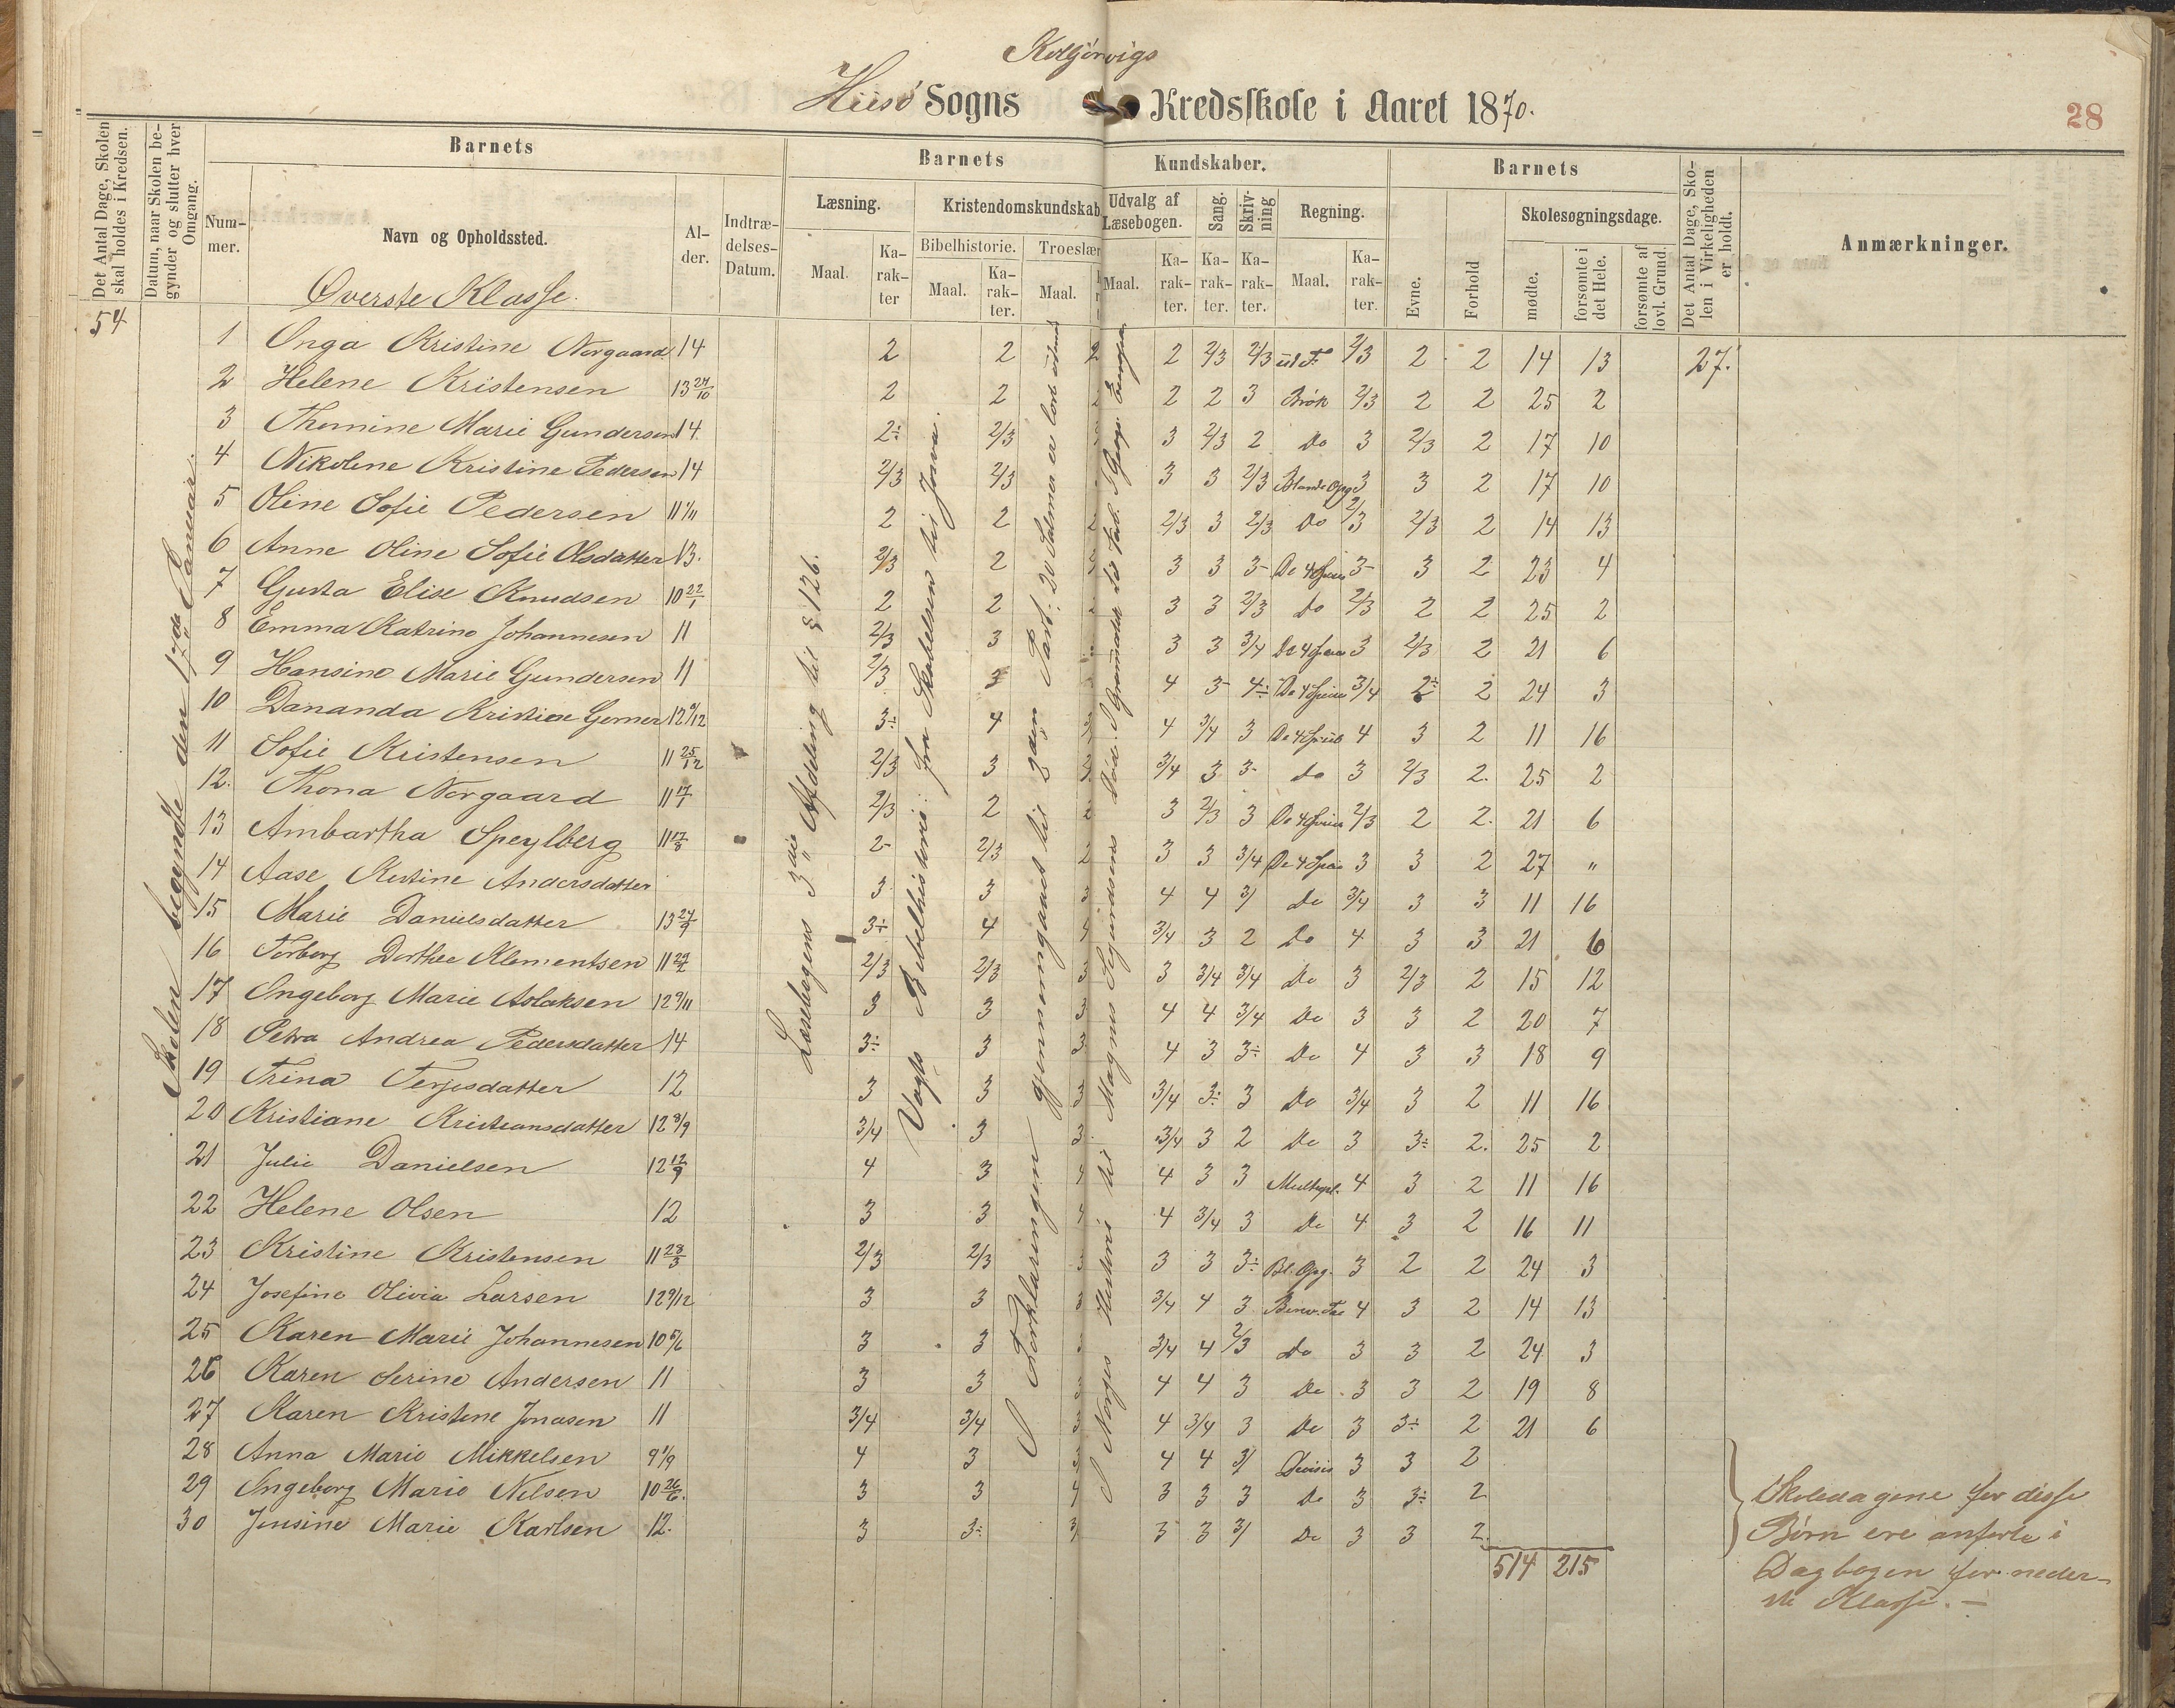 Kolbjørnvigs
Hiisø Sogns Kredsskole i Aaret 1870.
28
Det Antal Dage, Skolen skal holdes i Kredsen.
Datum, naar Skolen begynder og slutter hver Omgang.
Barnets
Nummer.
Navn og Opholdssted.
Alder.
Indtrædelses-Datum.
Barnets Kundskaber.
Læsning.
Maal.
Karakter
Kristendomskundskab
Bibelhistorie.
Maal.
Karakter.
Troeslær
Maal.
Udvalg af Læsebogen.
Maal.
Karakter.
Sang.
Karakter.
Skrivning
Karakter.
Regning.
Maal.
Karakter.
Barnets
Evne.
Forhold
Skolesøgningsdage.
mødte.
forsømte i det Hele.
forsømte af lovl. Grund.
Det Antal Dage, Skolen i Virkeligheden er holdt.
Anmærkninger.
Øverste Klasse.
54
Skolen begyndte den 17de Januar.
Læsebogens 3die Afdeling til § 126.
Vogts Bibelhistorie: fra Skabelsen til Josva.
I Forklaringen gjennemgaaet til 3die Part. 20 Salmer er lært
I Norges Historie til Magnus Sigurdsens Død. I Gramatik I Geogr. Europa
1 Inga Kristine Norgaard 14 2 2 2 2 2/3 2/3 2/3 2 2 14 13 27.
2 Helene Kristensen 13 27/10 2 2 2 2 2 3 Brøk 2/3 2 2 25 2
3 Thomine Marie Gundersen 14. 2÷ 2/3 3 2/3 2 Do 3 2/3 2 17 10
4 Nikoline Kristine Pedersen 14 2/3 2/3 3 3 2/3 Blande Opg 3 3 2 17 10
5 Oline Sofie Pedersen 11 1/11 2 2 2 2/3 3 2/3 Do 2/3 2/3 2 14 13
6 Anne Oline Sofie Olsdatter 13. 2/3 2 3 3 3 3- Do 4 Spcies 3- 3 2 23 4
7 Gusta Elise Knudsen 10 22/1 2 2 3 3 2/3 Do 2/3 2 2 25 2
8 Emma Katrine Johannesen 11 2/3 3 3 3 3/4 Do 4 3 2/3 2 21 6
9 Hansine Marie Gundersen 11 2/3 3 4 3- 4÷ Do 4 Spcies 3/4 2÷ 2 24 3
10 Dananda Kristine 12 3÷ 4 3 4 3/4 3 Do 4 4 3 2 11 16
11 Sofie Kristensen 11 25/12 2/3 3 3 3/4 3 3- do 3 2/3 2. 25 2
12. Thona Norgaard 11 17/1 2/3 2 2 3 2/3 3 Do 4 2/3 2 2. 21 6
13 Ambartha Speylberg 11 17/8 2- 2/3 2 3 3 3/4 Do 4 3 3 2 27 "
14 Aase Kistine Andersdatter 3 3 3 4 4 3/ Do 3/4 3 3 11 16
15 Marie Danielsdatter 13 27/9 3÷ 4 4 3/4 3 2 Do 4 3 3 21 6
16 Torborg Dorthee Klementsen 11 2/3 2/3 3 3 3/4 3/4 Do 3 2/3 2 15 12
17 Ingeborg Marie Aslaksen 12 9/11 3 3 3 4 4 3/4 Do 3 3 2 20 7
18 Petra Andrea Pedersdatter 14 3÷ 3 3 4 3 3÷ Do 4 3 3 18 9
19 Trina Terjesdatter 12 3 3 3 3/4 3÷ 3 Do 3/4 3 2 11 16
20 Kristiane Kristiansdatter 12 8/9 3/4 3 3 3/4 3 2 Do 3 3÷ 2. 25 2
21 Julie Danielsen 12 12/9 4 3 4 4 3 3 Multipl. 4 3 2 11 16
22 Helene Olsen 12 3 3 4 4 3/4 3 Do 4 3 2 16 11
23 Kristine Kristensen 11 28/3 2/3 2/3 3 3 3 3÷ Bl. Opg. 3 2 2 24 3
24 Josefine Olivia Larsen 12 9/12 3 3 3 3/4 4 3 4 3 2 14 13
25 Karen Marie Johannesen 10 5/6 3 3 3 3/4 4 2/3 Do 3 3 2 24 3
26 Karen Serine Andersen 11 3 3 3 4 4 3 Do 3 3 2 19 8
27 Karen Kristine Jonasen 11 3/4 3/4 3 4 3/4 3 Do 3 3÷ 2 21 6
28 Anna Marie Mikkelsen 9 1/9 4 3 3 4 4 3/ Divisio 3 3 2
29 Ingeborg Marie Nilsen 10 26/6. 3 3 4 3 3 3 Do 3 3÷ 2
30 Jensine Marie Karlsen 12. 3 3÷ 3/ 3 3 3/ Do 3 3 2.
514 215
Skoledagene for disse
Børn ere anførte i
Dagbogen for neder-
ste Klasse. —